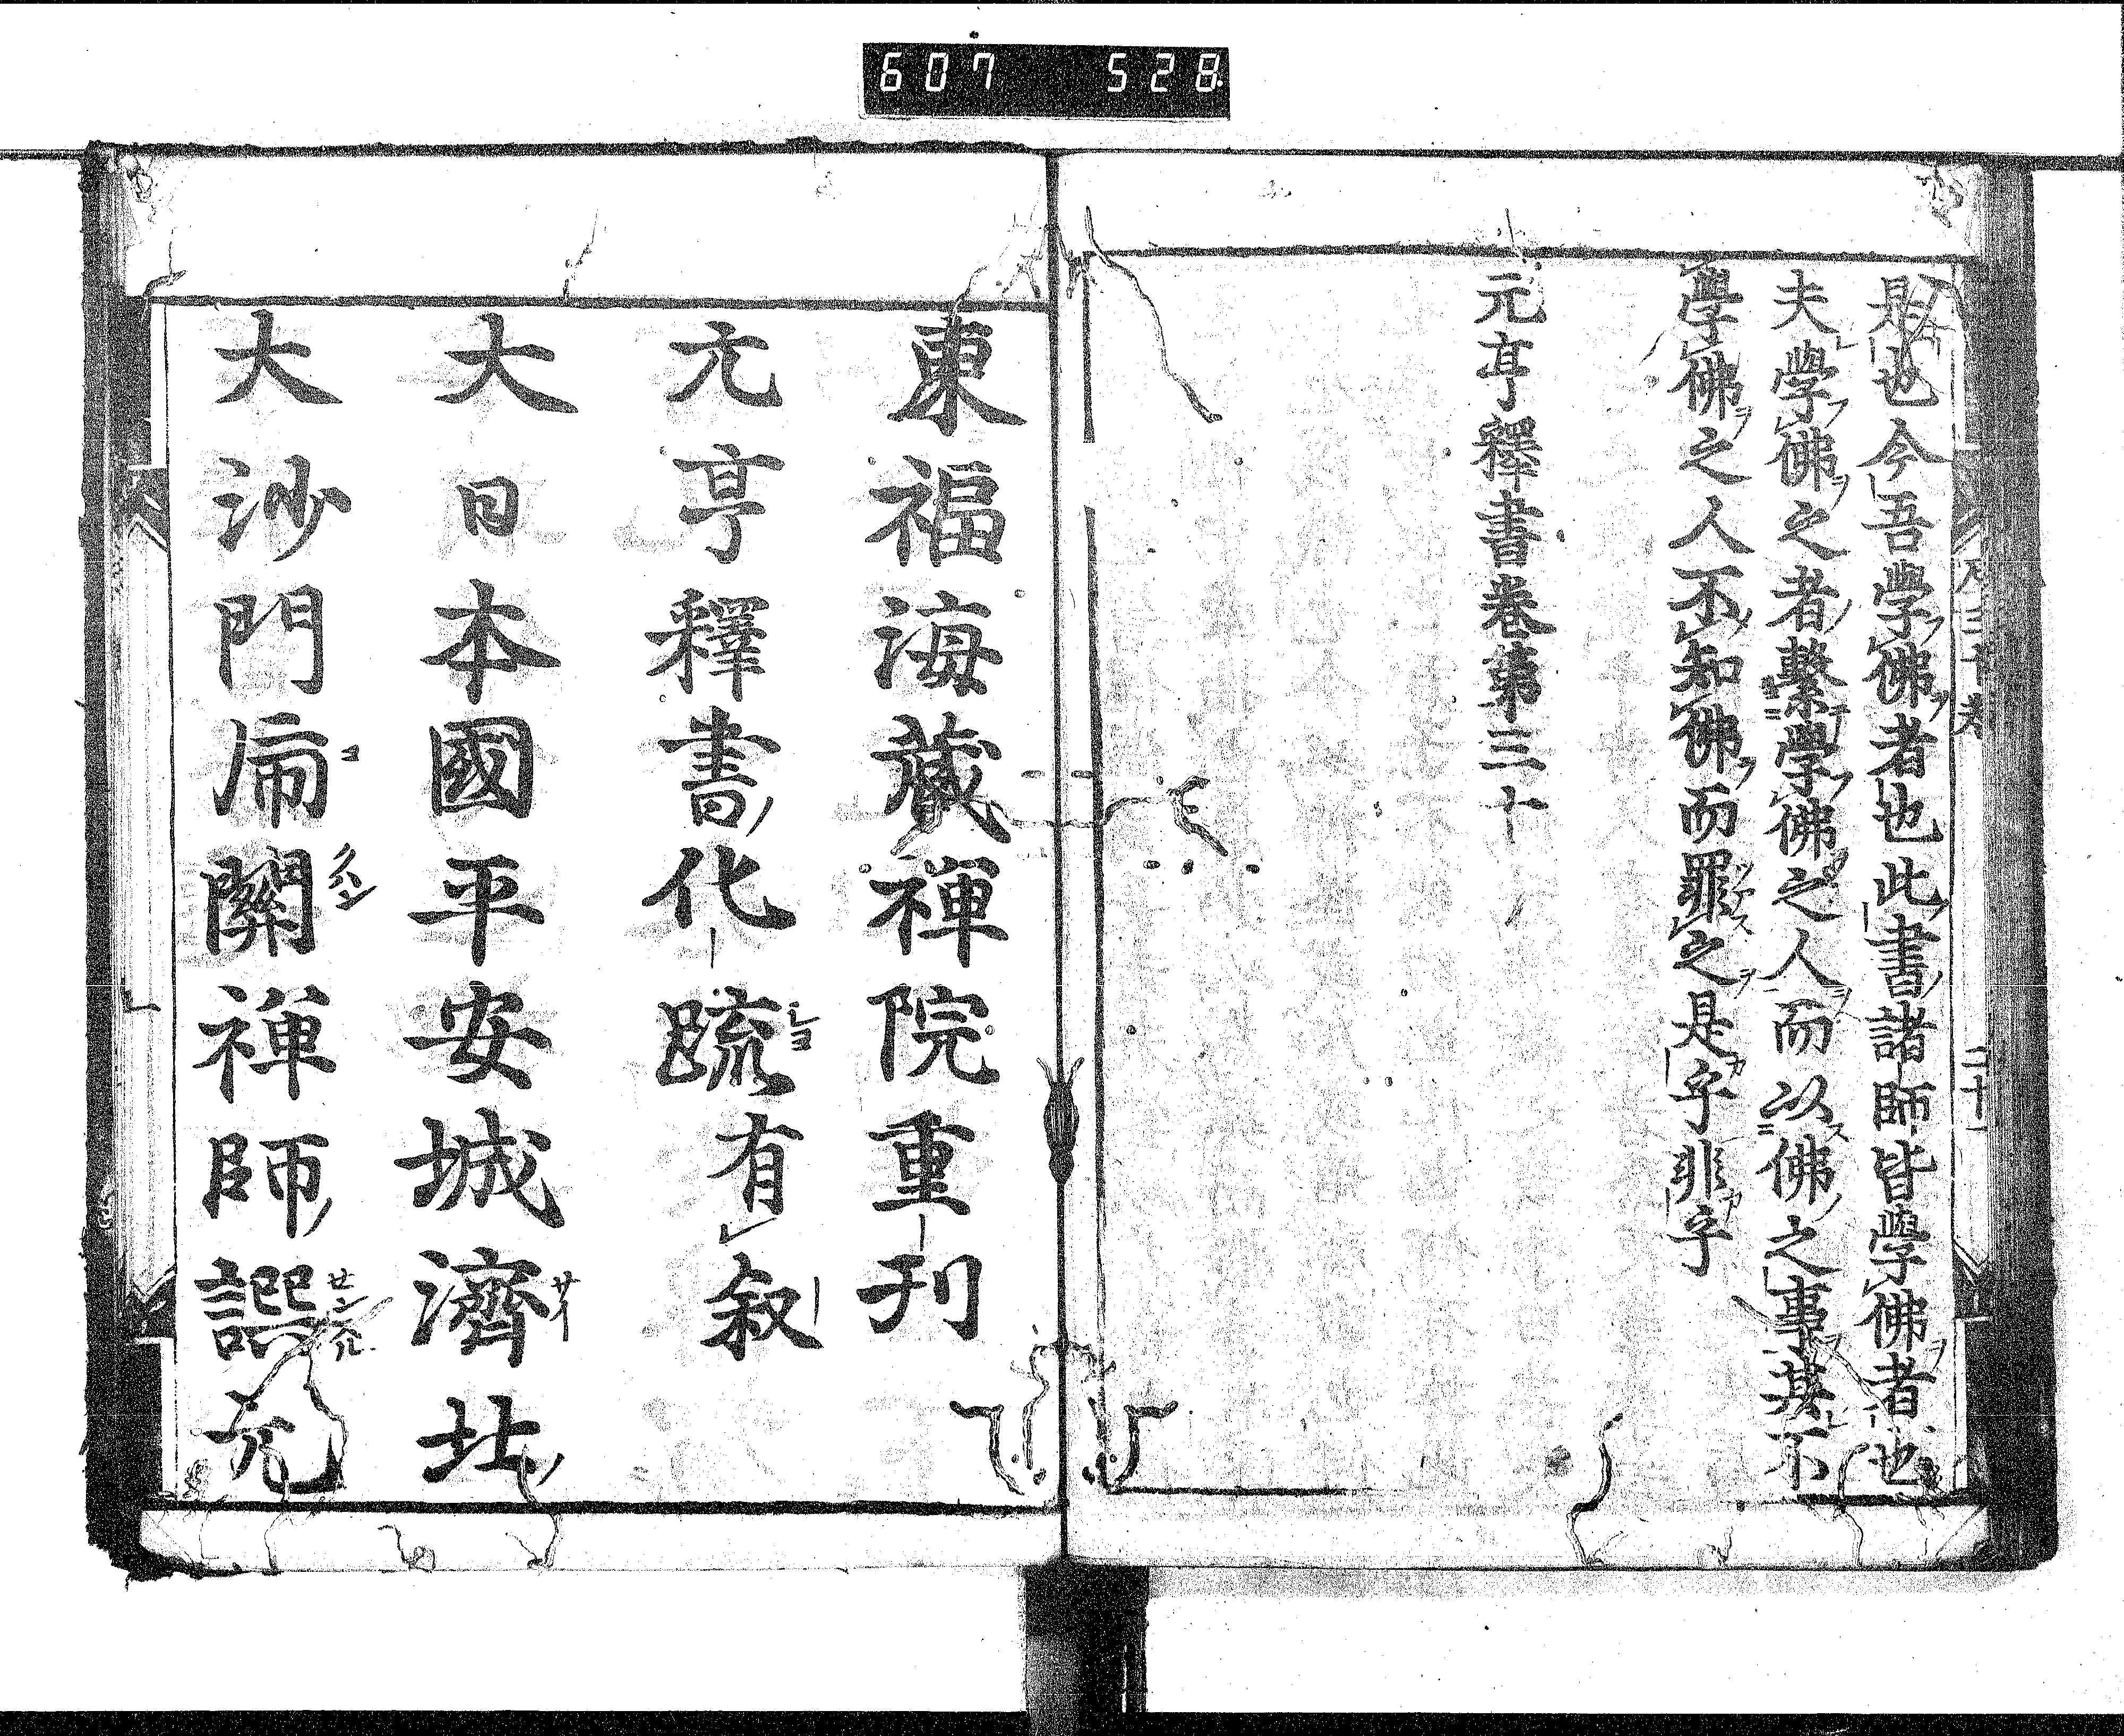 607 528
是也今吾學佛者也此書諸師皆學佛者也
夫學佛之者繫學佛之人而以佛之事其不
學佛之人不知佛而罪之是乎非乎
元亨釋書卷第三十
東福海藏禪院重刊
元亨釋書化䟽有叙
大日本國平安城濟北
大沙門虎關禪師譔元